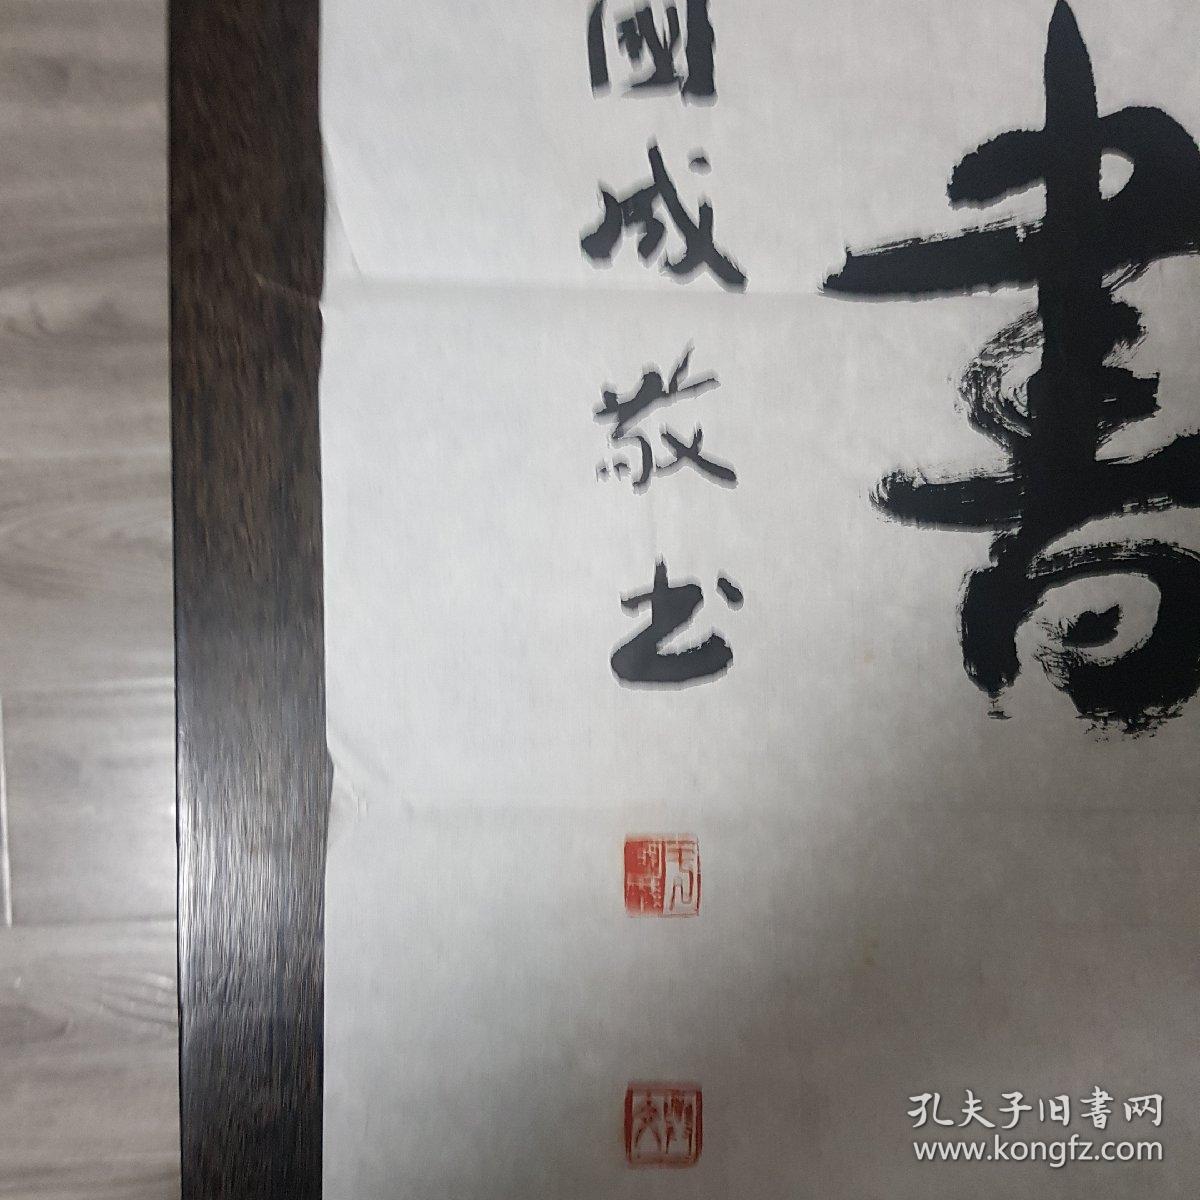 書
國成敬书
孔夫子旧書网
www.kongfz.com